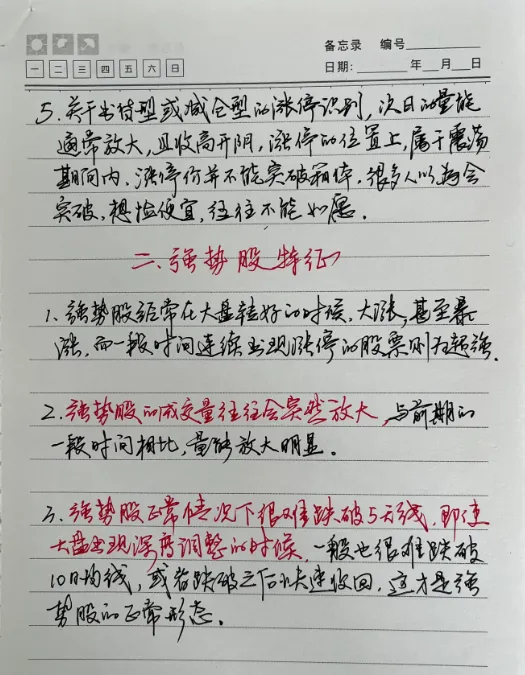 备忘录 编号
一 二 三 四 五 六 日
日期: 年 月 日
5、关于出货型或减仓型的涨停识别，次日的量能
通常放大，且收高开阴，涨停的位置上，属于震荡
期间内，涨停价并不能突破箱体，很多人以为会
突破，想捡便宜，往往不能如愿。
二、强势股特征
1、强势股经常在大盘转好的时候，大涨，甚至暴
涨，而一段时间连续出现涨停的股票则为超强。
2、强势股的成交量往往会突然放大，与前期的
一段时间相比，量能放大明显。
3、强势股正常情况下很难跌破5天线，即使
大盘出现深度调整的时候，一般也很难跌破
10日均线，或者跌破之后快速收回，这才是强
势股的正常形态。